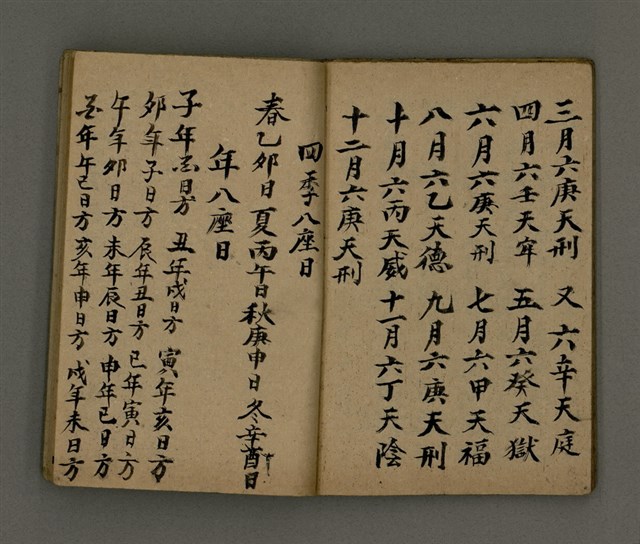 三月六庚天刑　又　六辛天庭
四月六壬天牢　五月六癸天獄
六月六庚天刑　七月六甲天福
八月六乙天德　九月六庚天刑
十月六丙天威　十一月六丁天陰
十二月六庚天刑
四季八座日
春乙卯日夏丙午日秋庚申日冬辛酉日
年八座日
子年　日方　丑年戌日方　寅年亥日方
卯年子日方　辰年丑日方　巳年寅日方
午年卯日方　未年辰日方　申年巳日方
年午巳日方　亥年申日方　戌年未日方